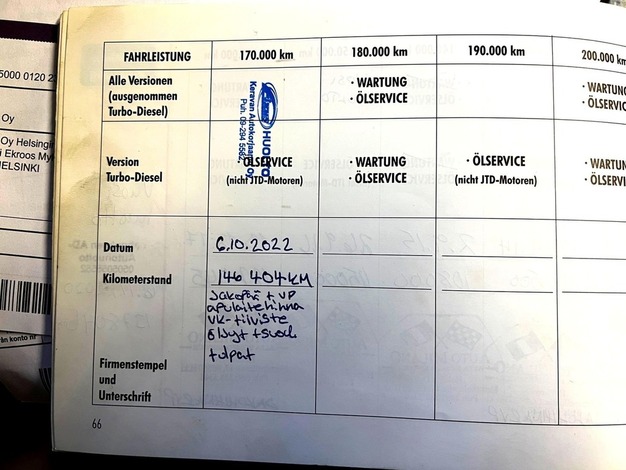 5000 0120 2
Oy
Oy Helsingin
i Ekroos My
HELSINKI
FAHRLEISTUNG 170.000 km 180.000 km 190.000 km 200.000 km
Alle Versionen
(ausgenommen
Turbo-Diesel)
· WARTUNG
· ÖLSERVICE
· WARTUNG
· ÖLSERVICE
HUOLTO
Keravan Autokorjaamo Oy
Puh. 09-294 5582
Version
Turbo-Diesel
· ÖLSERVICE
(nicht JTD-Motoren)
· WARTUNG
· ÖLSERVICE
· ÖLSERVICE
(nicht JTD-Motoren)
· WARTUNG
· ÖLSERVICE
Datum 6.10.2022
Kilometerstand 146 404 KM
Jakopää + VP
apulaitehihna
VK-tiiviste
öljyt + suod
+ tulpat
Firmenstempel
und
Unterschrift
66